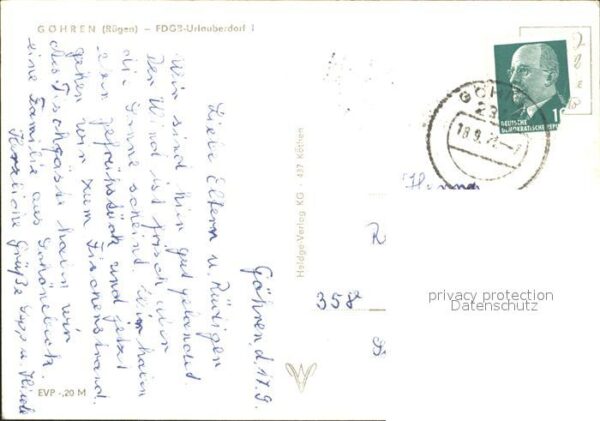 GÖHREN (Rügen) – FDGB-Urlauberdorf 1
Göhren, d. 17.9.
Liebe Eltern u. Rüdiger
Wir sind hier gut gelandet.
Der Wind ist frisch aber
die Sonne scheint. Wir haben
gefrühstückt und jetzt
gehen wir zum Fischerstrand.
Als Tischgäste haben wir
eine Familie aus Schönebeck.
Herzliche Grüße u.
EVP -,20 M
Heldge-Verlag KG · 437 Köthen
GÖHR
18.9.
DEUTSCHE
DEMOKRATISCHE REPUB
10
Herrn
R
358
privacy protection
Datenschutz